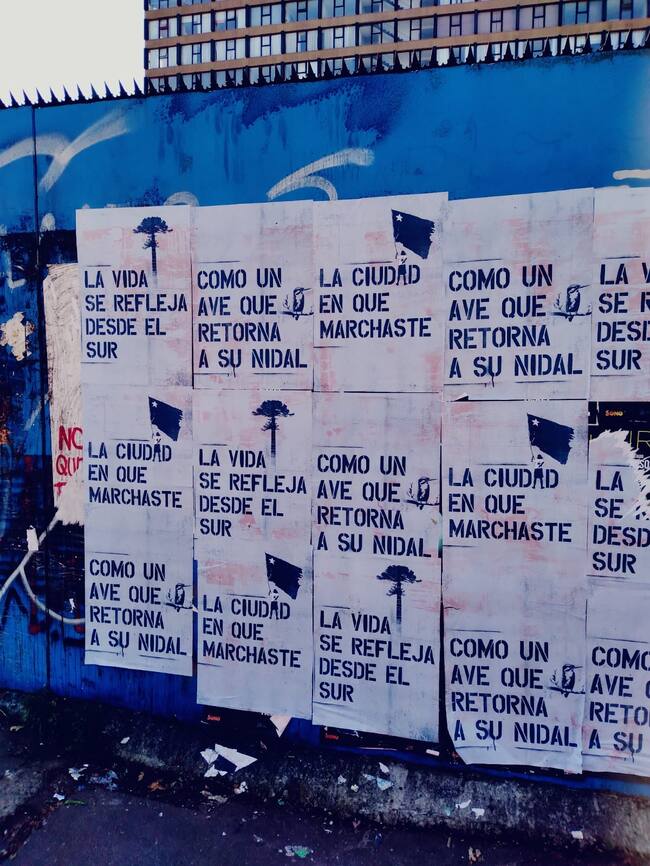 LA VIDA
SE REFLEJA
DESDE EL
SUR
COMO UN
AVE QUE
RETORNA
A SU NIDAL
LA CIUDAD
EN QUE
MARCHASTE
COMO UN
AVE QUE
RETORNA
A SU NIDAL
LA V
SE R
DESD
SUR
LA CIUDAD
EN QUE
MARCHASTE
LA VIDA
SE REFLEJA
DESDE EL
SUR
COMO UN
AVE QUE
RETORNA
A SU NIDAL
LA CIUDAD
EN QUE
MARCHASTE
LA
SE
DESD
SUR
COMO UN
AVE QUE
RETORNA
A SU NIDAL
LA CIUDAD
EN QUE
MARCHASTE
LA VIDA
SE REFLEJA
DESDE EL
SUR
COMO UN
AVE QUE
RETORNA
A SU NIDAL
COMO
AVE
RETO
A SU
NO
QUE